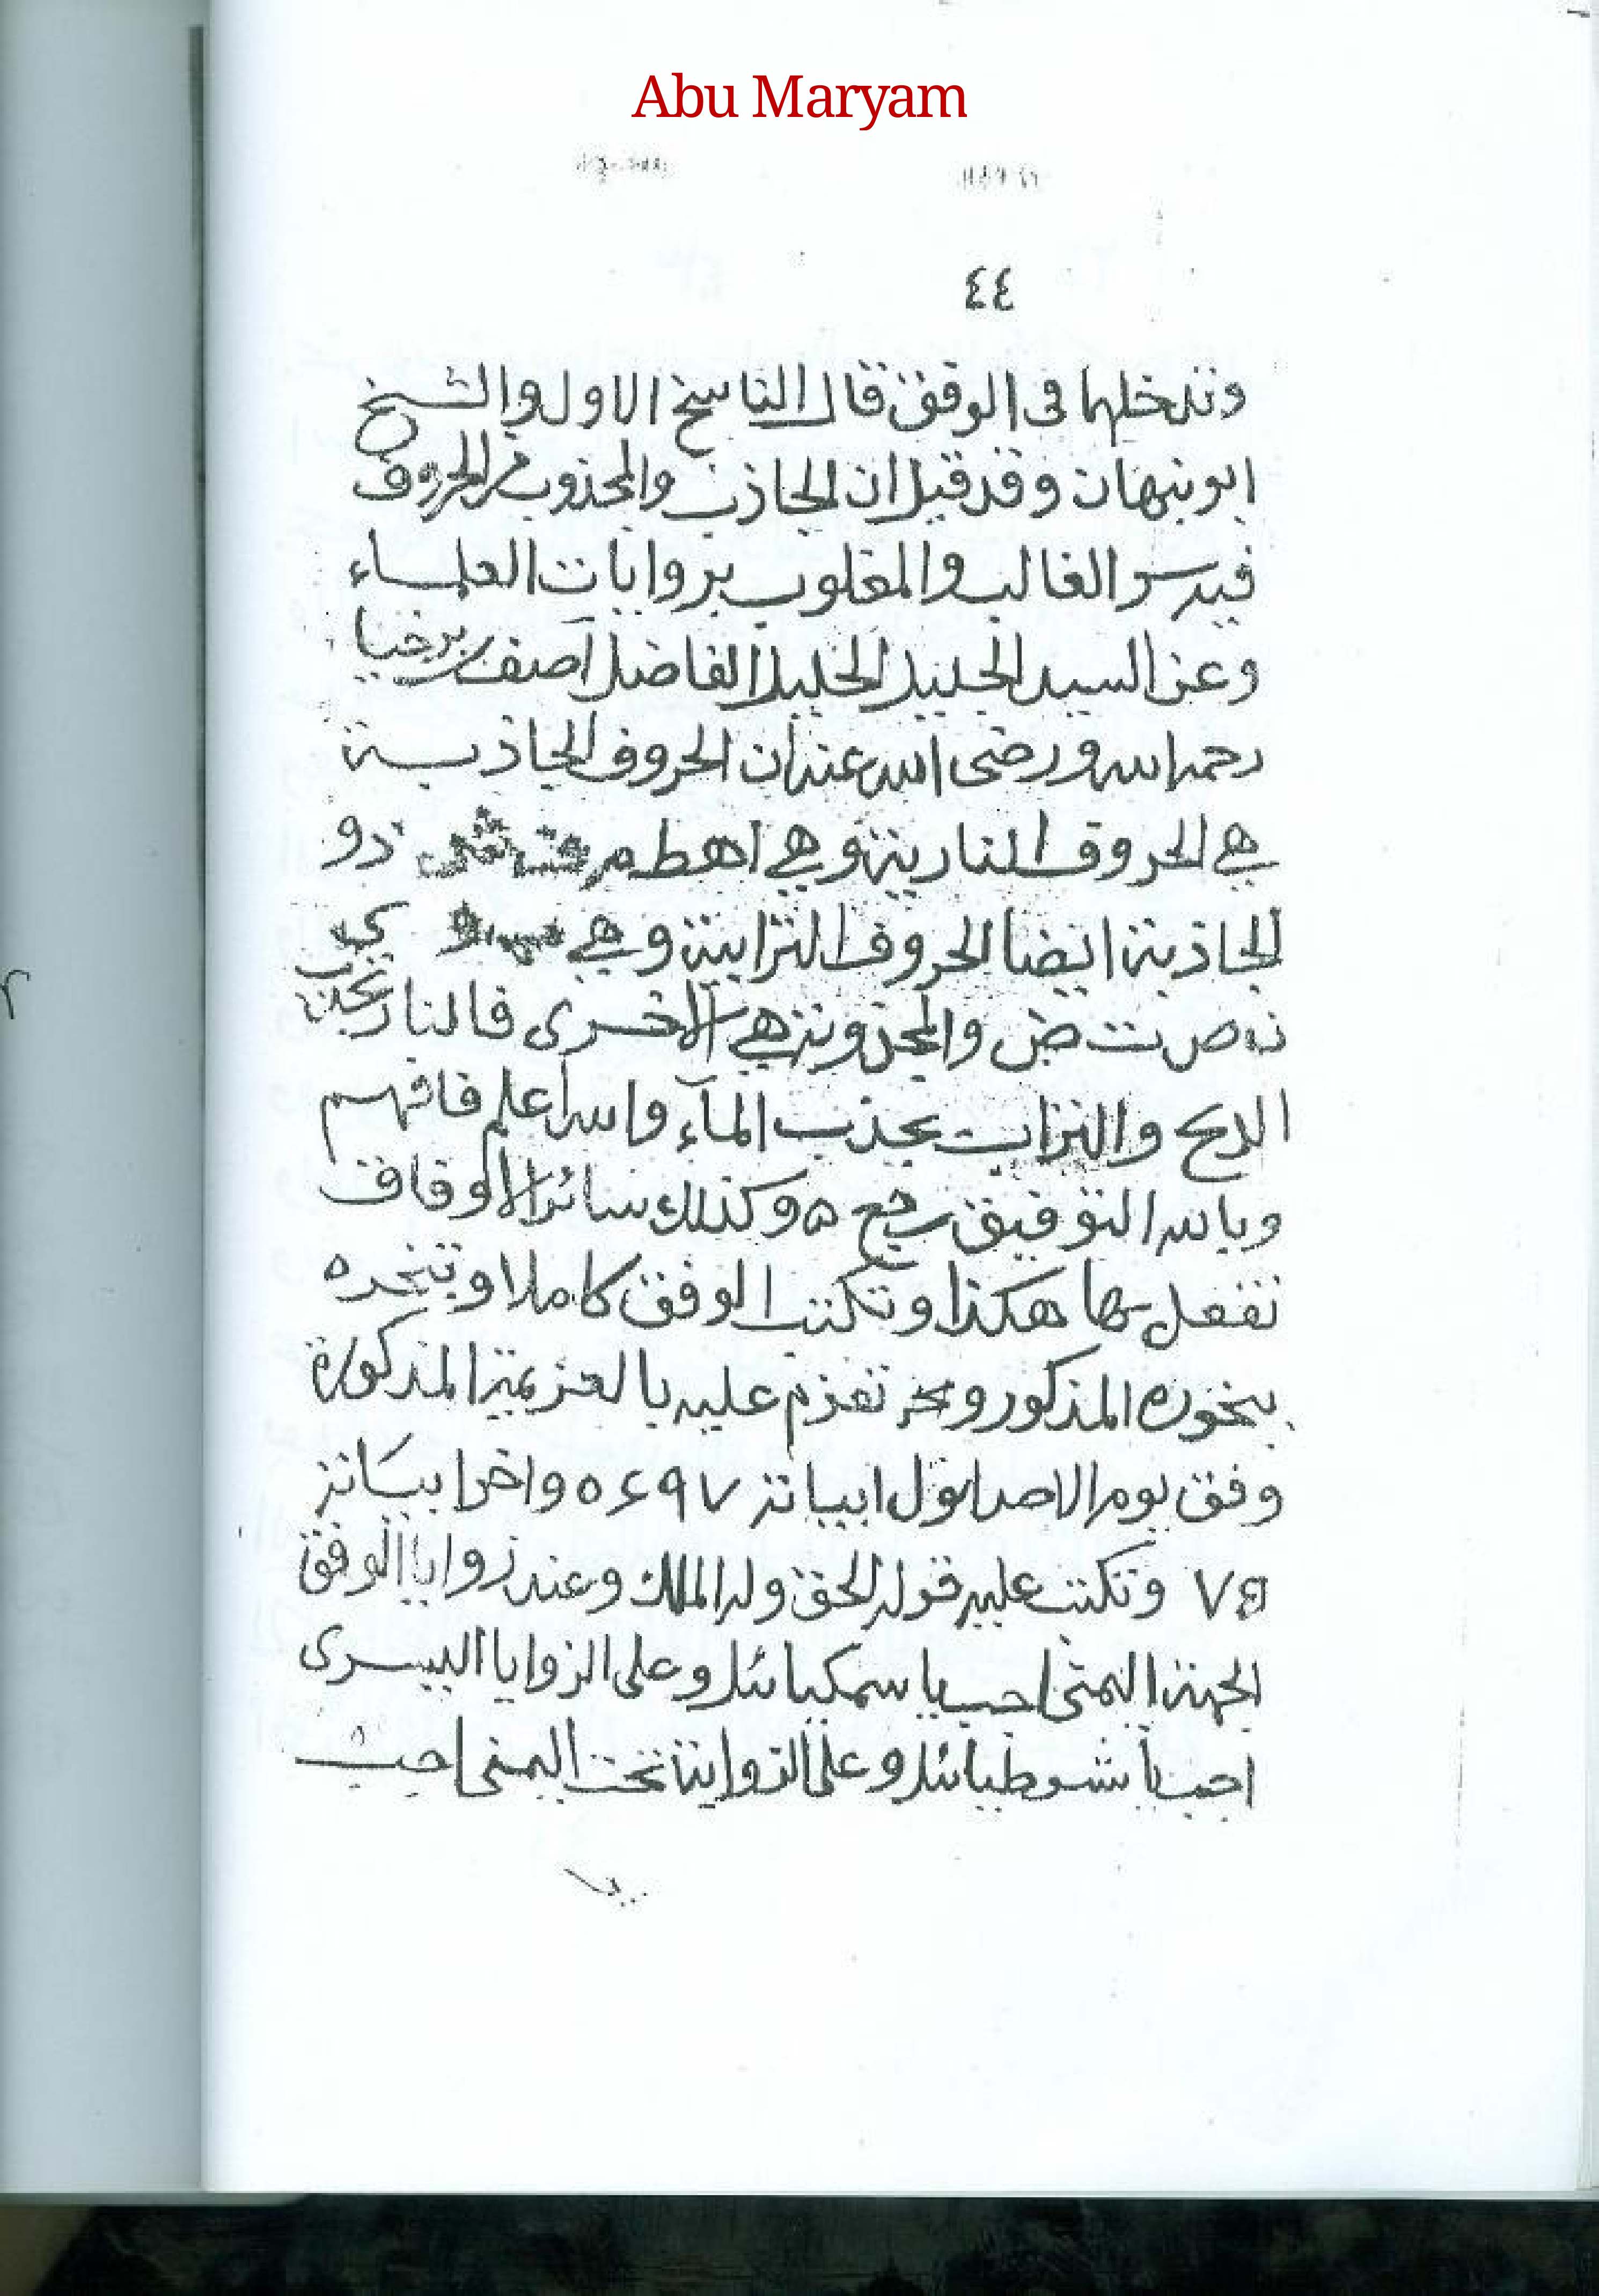 Abu Maryam
٤٤
وتدخلها فى الوقف قال الناسخ الاول والشيخ
ابو نبهان وقد قيل ان الجاذب والمجذوب من الحروف
فيه سر الغالب والمغلوب بروايات العلماء
وعن السيد الجليد الخليل الفاضل آصف برخيا
رحمه الله ورضى الله عنه ان الحروف الجاذبة
هي الحروف النارية وهي اهطم ذو
الجاذبة ايضا الحروف الترابية وهي
ن ص ت ض والمجذوبة هي الاخرى فالنار تجذب
الريح والتراب يجذب المآء والله اعلم فافهم
وبالله التوفيق رجع ه وكذلك سائر الاوفاق
تفعل بها هكذا وتكتب الوفق كاملا وتبخره
ببخوره المذكور وتعزم عليه بالعزيمة المذكورة
وفق يوم الاحد اول ابياته ٥٤٩٧ واخر ابياته
وتكتب عليه قوله الحق وله الملك وعند زوايا الوفق
الجهة اليمنى اجب يا سمكيائل وعلى الزوايا اليسرى
اجب يا شوطيائل وعلى الزواية تحت اليمنى اجب
يا